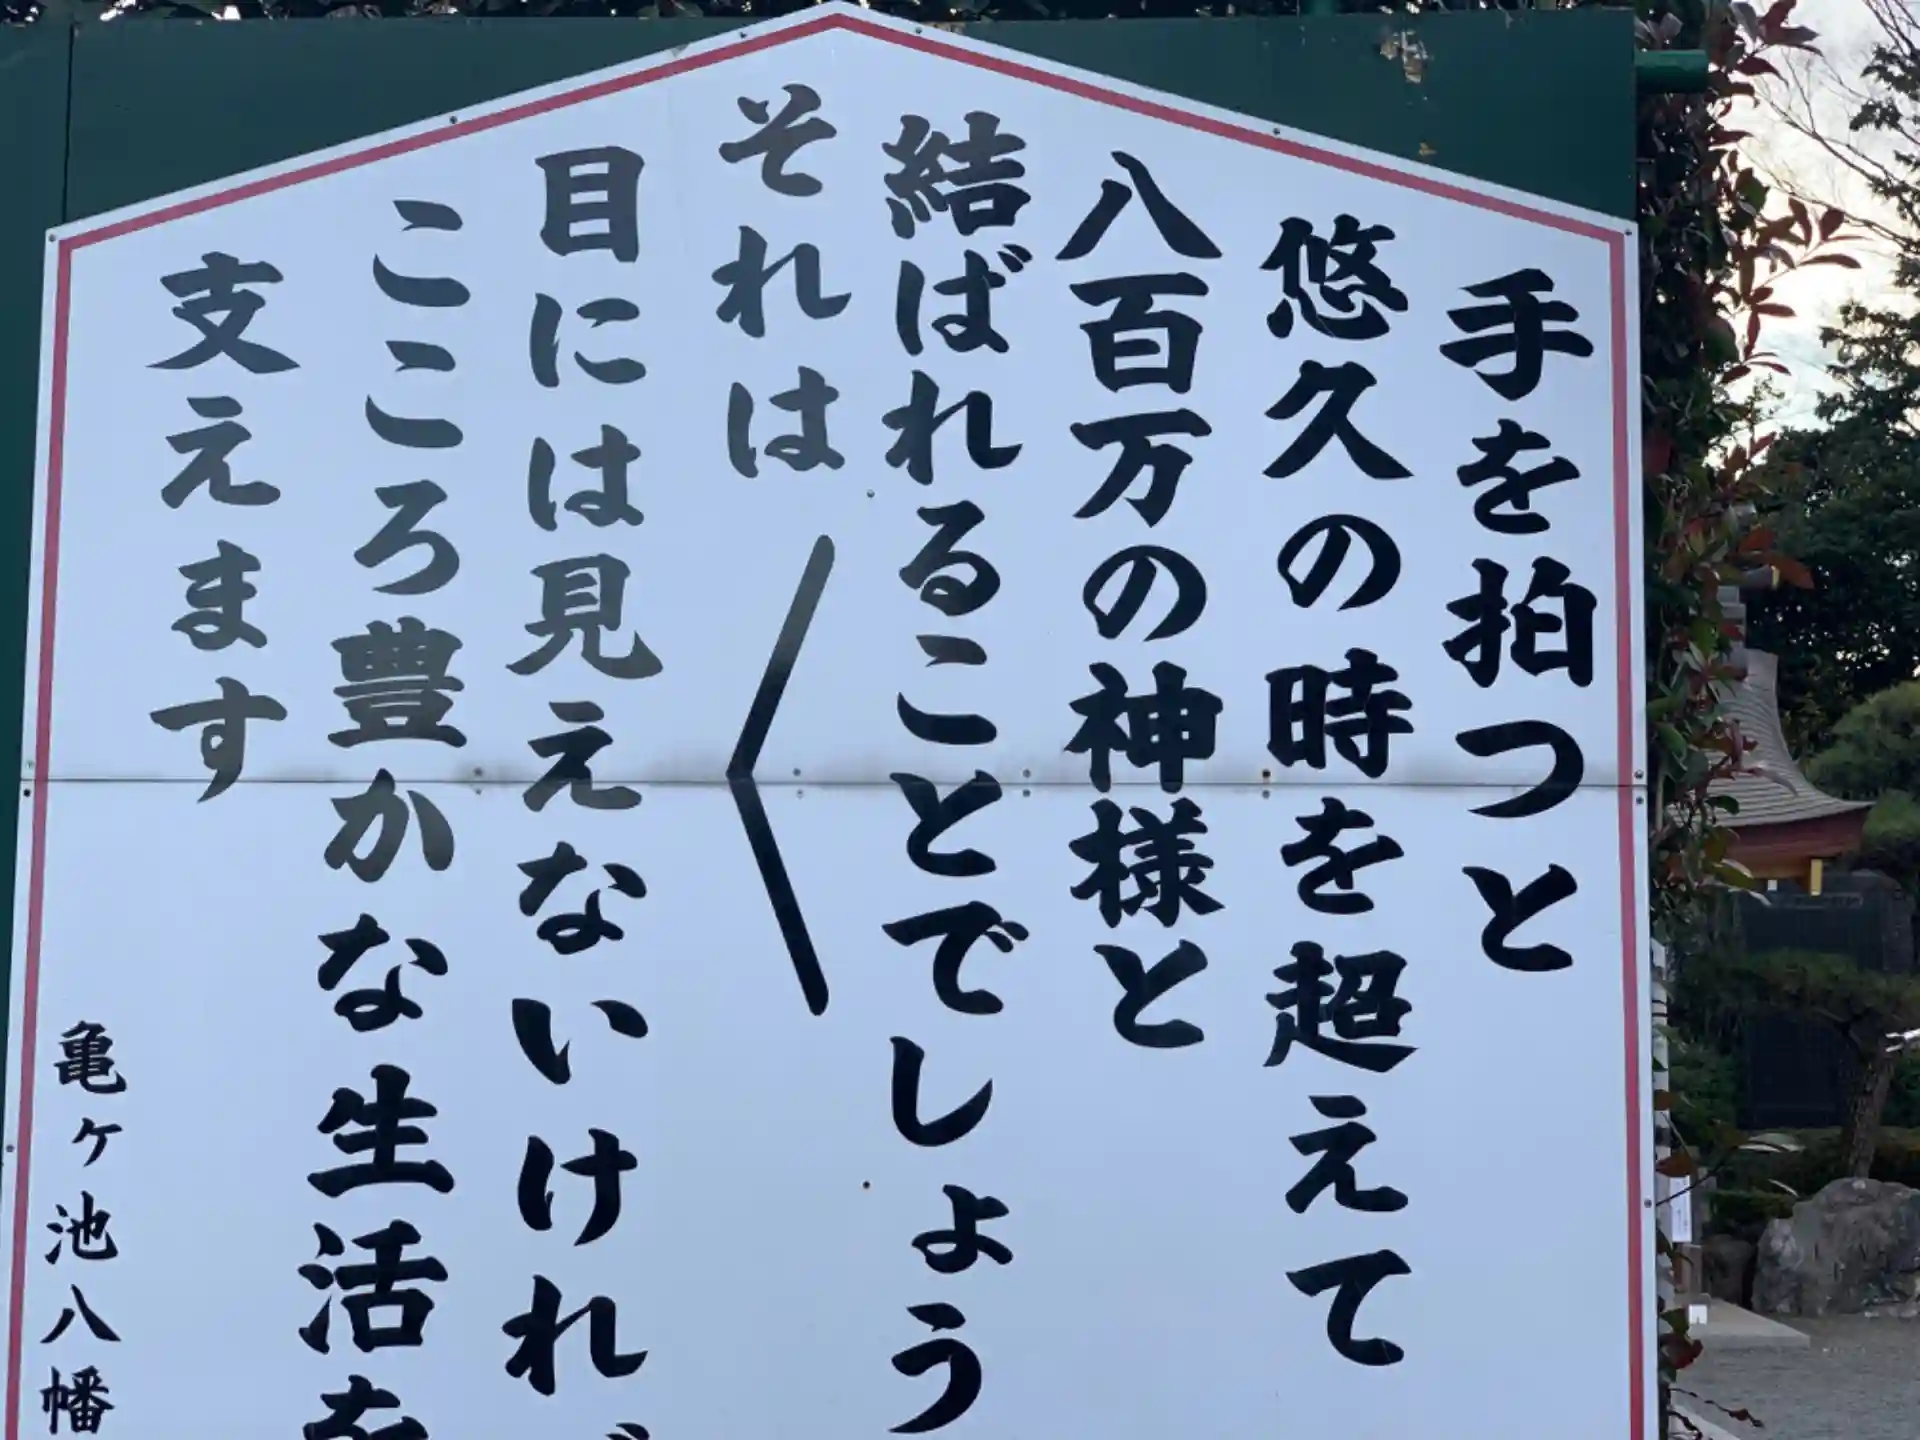 手を拍つと
悠久の時を超えて
八百万の神様と
結ばれることでしょう
それは〱
目には見えないけれ
こころ豊かな生活を
支えます
亀ヶ池八幡